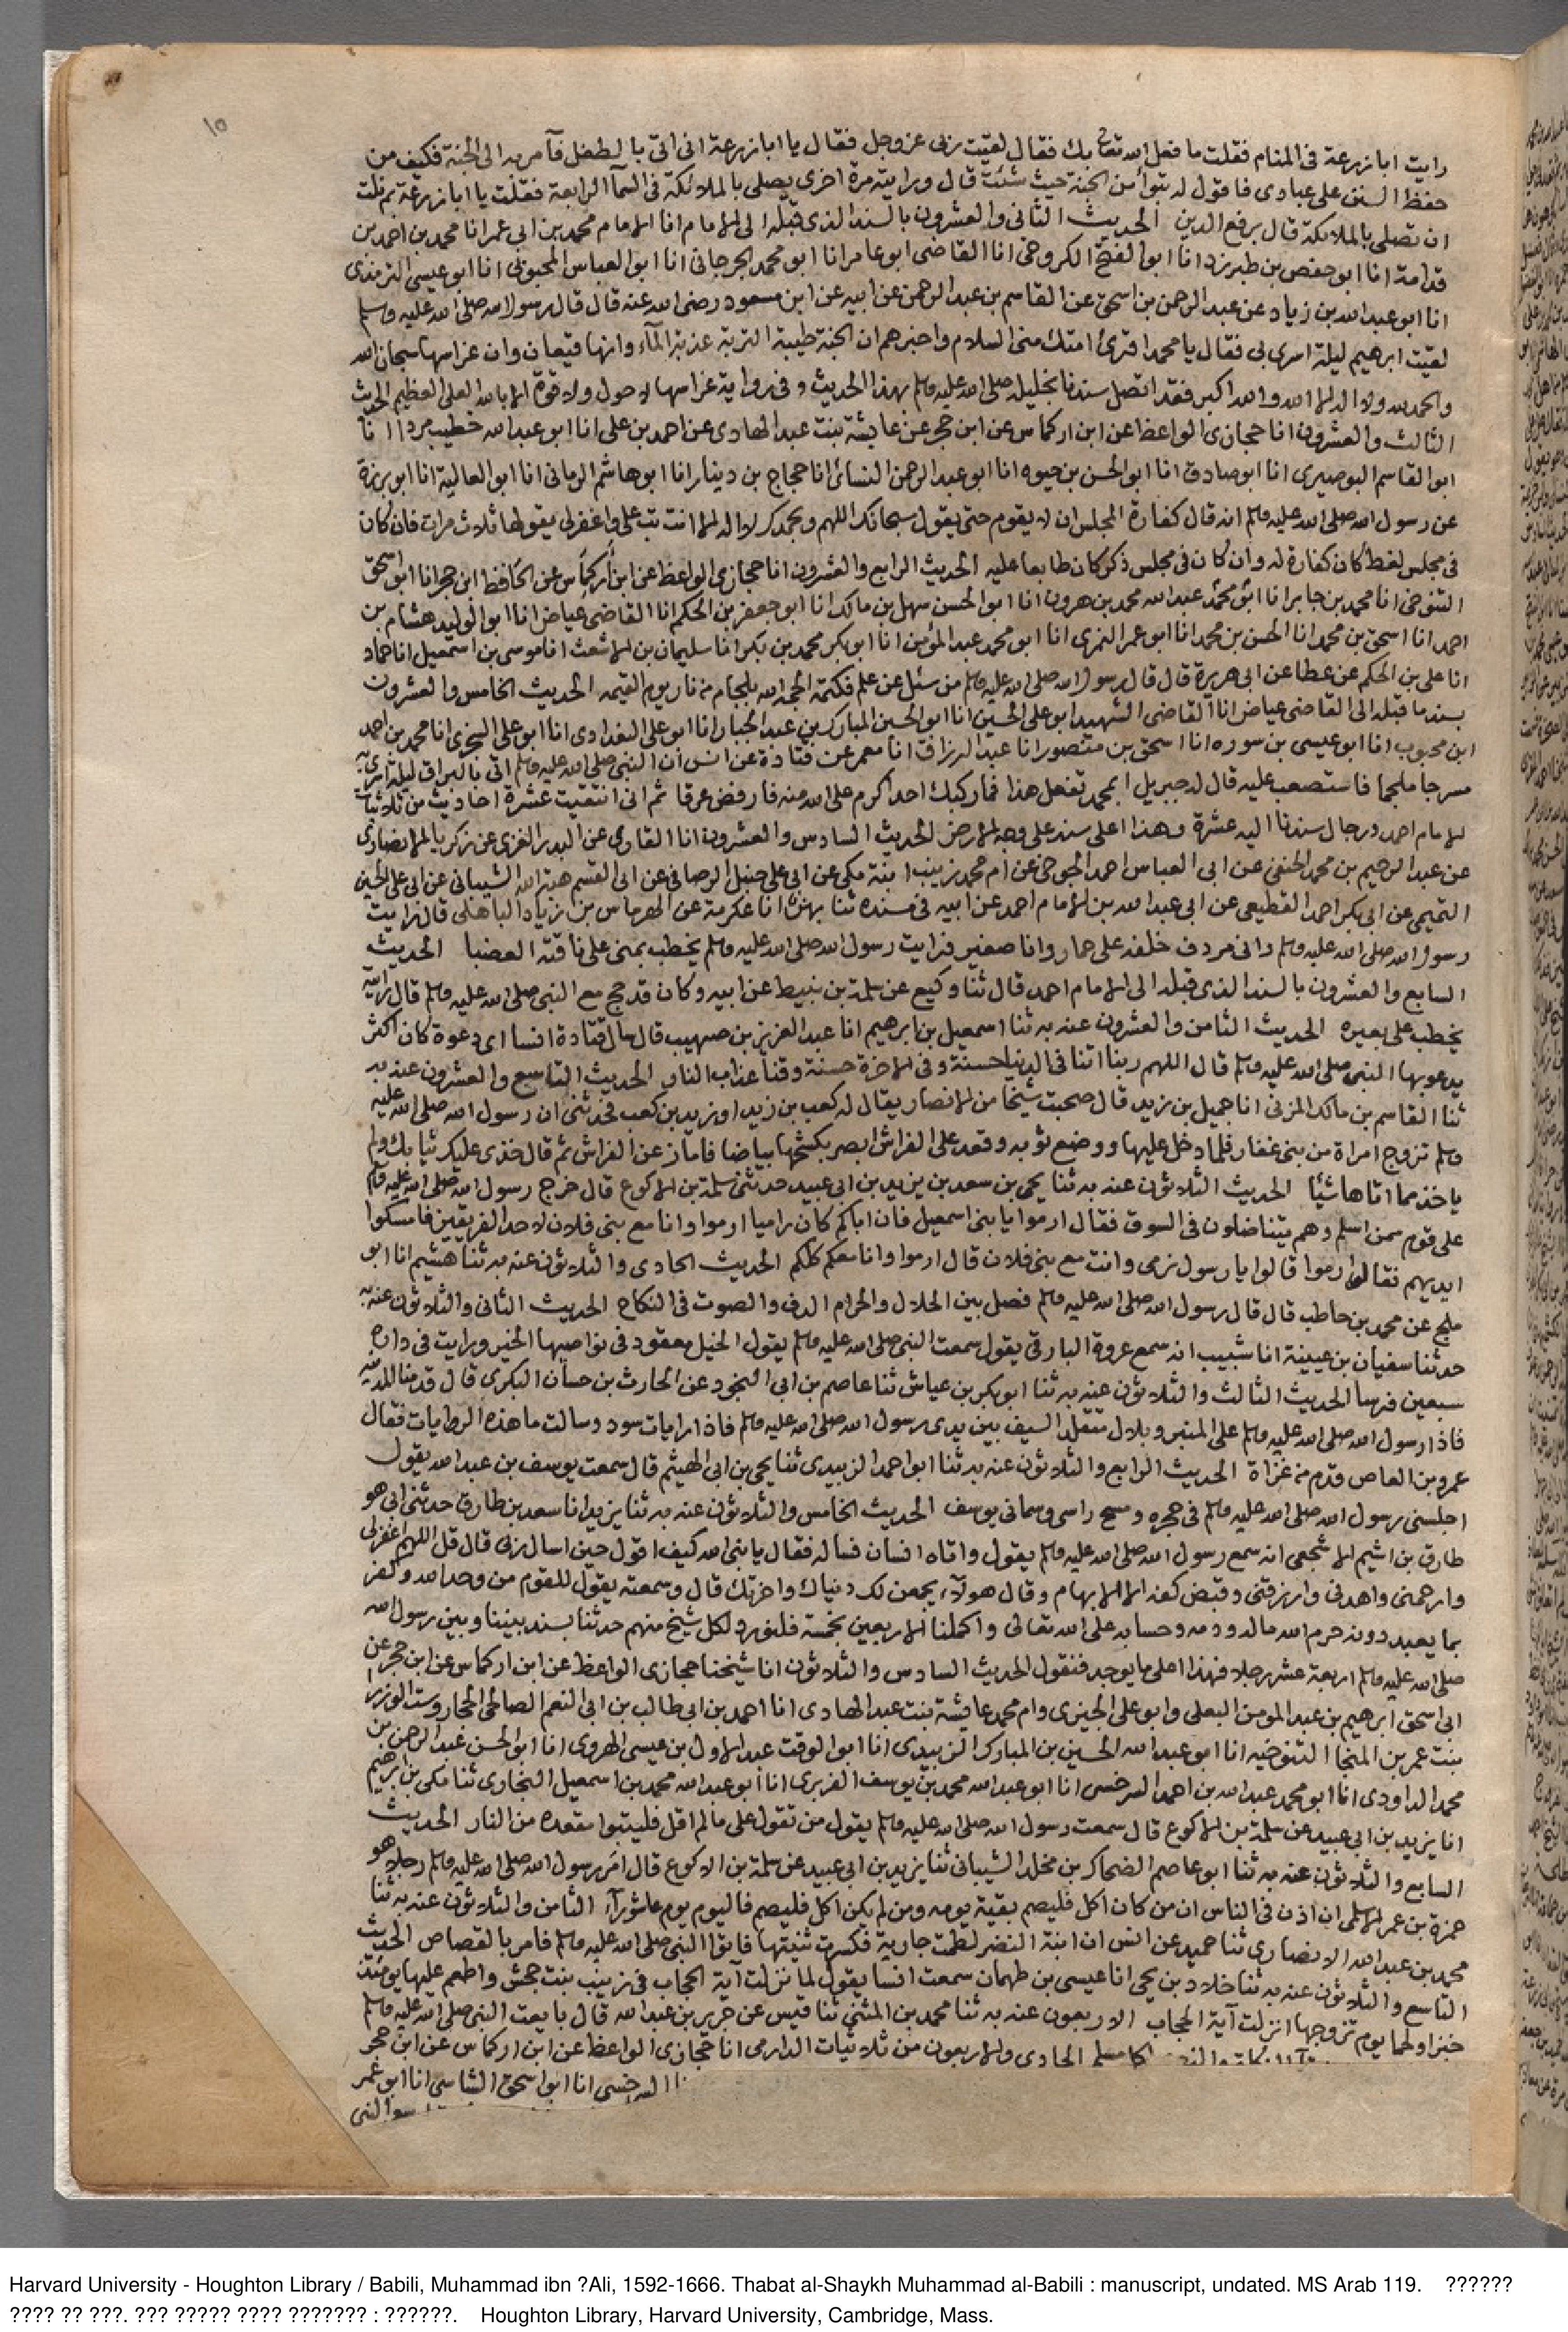 ١٥
رايت ابا زرعة فى المنام فقلت ما فعل الله تعالى بك فقال لقيت ربى عز وجل فقال يا ابا زرعة انى اتى بالطفل فآمر به الى الجنة فكيف من
حفظ السنن على عبادى فاقول له تبوأ من الجنة حيث شئت قال ورايته مرة اخرى يصلى بالملائكة فى السمآ الرابعة فقلت يا ابا زرعة بم نلت
ان تصلى بالملائكة قال برفع اليدين الحديث الثانى والعشرون بالسند الذى قبله الى الامام انا الامام محمد بن ابى عمر انا محمد بن احمد بن
قدامة انا ابو حفص بن طبرزد انا ابو الفتح الكروخى انا القاضى ابو عامر انا ابو محمد الجرجانى انا ابو العباس المحبوبى انا ابو عيسى الترمذى
انا ابو عبد الله بن زياد عن عبد الرحمن بن اسحق عن القاسم بن عبد الرحمن عن ابيه عن ابن مسعود رضى الله عنه قال قال رسول الله صلى الله عليه وسلم
لقيت ابرهيم ليلة اسرى بى فقال يا محمد اقرئ امتك منى السلام واخبرهم ان الجنة طيبة التربة عذبة المآء وانها قيعان وان غراسها سبحان الله
والحمد لله ولا اله الا الله والله اكبر فقد اتصل سندنا بخليله صلى الله عليه وسلم بهذا الحديث وفى رواية غراسها لا حول ولا قوة الا بالله العلى العظيم الحديث
الثالث والعشرون انا حجازى الواعظ عن ابن اركماس عن ابن حجر عن عايشة بنت عبد الهادى عن احمد بن على انا ابو عبد الله خطيب مردا انا
ابو القاسم البوصيرى انا ابو صادق انا ابو الحسن بن حيوه انا ابو عبد الرحمن النسائى انا حجاج بن دينار انا ابو هاشم الرمانى انا ابو العالية انا ابو برزة
عن رسول الله صلى الله عليه وسلم انه قال كفارة المجلس ان لا يقوم حتى يقول سبحانك اللهم وبحمدك لا اله الا انت تب على واغفر لى يقولها ثلاث مرات فان كان
فى مجلس لغط كان كفارة له وان كان فى مجلس ذكر كان طابعا عليه الحديث الرابع والعشرون انا حجازى الواعظ عن ابن اركماس عن الحافظ ابن حجر انا ابو اسحق
التنوخى انا محمد بن جابر انا ابو محمد عبد الله محمد بن هرون انا ابو الحسن سهل بن مالك انا ابو جعفر بن الحكم انا القاضى عياض انا ابو الوليد هشام بن
احمد انا اسحق بن محمد انا الحسن بن محمد انا ابو عمر النمرى انا ابو محمد عبد المؤمن انا ابو بكر محمد بن بكر انا سليمان بن الاشعث انا موسى بن اسمعيل انا حماد
انا على بن الحكم عن عطا عن ابى هريرة قال قال رسول الله صلى الله عليه وسلم من سئل عن علم فكتمه الجمه الله بلجام من نار يوم القيمه الحديث الخامس والعشرون
بسند ما قبله الى القاضى عياض انا القاضى الشهيد ابو على الحسين انا ابو الحسين المبارك بن عبد الجبار انا ابو على البغدادى انا ابو على السنجى انا محمد بن احمد
ابن محبوب انا ابو عيسى بن سوره انا اسحق بن منصور انا عبد الرزاق انا معمر عن قتادة عن انس ان النبى صلى الله عليه وسلم اتى بالبراق ليلة اسرى به
مسرجا ملجما فاستصعب عليه قال له جبريل ابمحمد تفعل هذا فما ركبك احد اكرم على الله منه فارفض عرقا ثم انى انتقيت عشرة احاديث من ثلاثيات
الامام احمد ورجال سندنا اليه عشرة وهذا اعلى سند على وجه الارض الحديث السادس والعشرون انا القارى عن البدر الغزى عن زكريا الانصارى
عن عبد الرحيم بن محمد الحنفى عن ابى العباس احمد الجوخى عن ام محمد زينب ابنة مكى عن ابى على حنبل الرصافى عن ابى القسم هبة الله الشيبانى عن ابى على الحسين
التميمى عن ابى بكر احمد القطيعى عن ابى عبد الله بن الامام احمد عن ابيه فى مسنده ثنا بهز انا عكرمة عن الهرماس بن زياد الباهلى قال رايت
رسول الله صلى الله عليه وسلم وانى مردف خلفه على حمار وانا صغير فرايت رسول الله صلى الله عليه وسلم يخطب بمنى على ناقته العضبا الحديث
السابع والعشرون بالسند الذى قبله الى الامام احمد قال ثنا وكيع عن سلمة بن نبيط عن ابيه وكان قد حج مع النبى صلى الله عليه وسلم قال رايته
يخطب على بعيره الحديث الثامن والعشرون عنه به ثنا اسمعيل بن ابرهيم انا عبد العزيز بن صهيب قال سال قتادة انسا اى دعوة كان اكثر
يدعو بها النبى صلى الله عليه وسلم قال اللهم ربنا اتنا فى الدنيا حسنة وفى الاخرة حسنة وقنا عذاب النار الحديث التاسع والعشرون عنه به
ثنا القاسم بن مالك المزنى انا جميل بن زيد قال صحبت شيخا من الانصار يقال له كعب بن زيد او زيد بن كعب فحدثنى ان رسول الله صلى الله عليه
وسلم تزوج امراة من بنى غفار فلما دخل عليها ووضع ثوبه وقعد على الفراش ابصر بكشحها بياضا فامّاز عن الفراش ثم قال خذى عليك ثيابك ولم
ياخذ مما اتاها شيئا الحديث الثلاثون عنه به ثنا يحيى بن سعد بن يزيد بن ابى عبيد حدثنى سلمة بن الاكوع قال خرج رسول الله صلى الله عليه وسلم
على قوم من اسلم وهم يتناضلون فى السوق فقال ارموا يا بنى اسمعيل فان اباكم كان راميا ارموا وانا مع بنى فلان لاحد الفريقين فامسكوا
ايديهم فقال ارموا قالوا يا رسول نرمى وانت مع بنى فلان قال ارموا وانا معكم كلكم الحديث الحادى والثلاثون عنه به ثنا هشيم انا ابو
بلج عن محمد بن حاطب قال قال رسول الله صلى الله عليه وسلم فصل بين الحلال والحرام الدف والصوت فى النكاح الحديث الثانى والثلاثون عنه به
حدثنا سفيان بن عيينة انا شبيب انه سمع عروة البارقى يقول سمعت النبى صلى الله عليه وسلم يقول الخيل معقود فى نواصيها الخير ورايت فى داره
سبعين فرسا الحديث الثالث والثلاثون عنه به ثنا ابو بكر بن عياش ثنا عاصم بن ابى النجود عن الحارث بن حسان البكرى قال قدمنا المدينة
فاذا رسول الله صلى الله عليه وسلم على المنبر وبلال متقلد السيف بين يدى رسول الله صلى الله عليه وسلم فاذا رايات سود وسالت ما هذه الرايات فقال
عمرو بن العاص قدم من غزاة الحديث الرابع والثلاثون عنه به ثنا ابو احمد الزبيدى ثنا يحيى بن ابى الهيثم قال سمعت يوسف بن عبد الله يقول
اجلسنى رسول الله صلى الله عليه وسلم فى حجره ومسح راسى وسمانى يوسف الحديث الخامس والثلاثون عنه به ثنا يزيد انا سعد بن طارق حدثنى ابى هو
طارق بن اشيم الاشجعى انه سمع رسول الله صلى الله عليه وسلم يقول واتاه انسان فساله فقال يا نبى الله كيف اقول حين اسال ربى قال قل اللهم اغفر لى
وارحمنى واهدنى وارزقنى وقبض كفه الا الابهام وقال هولآء يجمعن لك دنياك واخرتك قال وسمعته يقول للقوم من وحد الله وكفر
بما يعبد دونه حرم الله ماله ودمه وحسابه على الله تعالى واكملنا الاربعين بخمسة فلنورد لكل شيخ منهم حدثنا بسند بيننا وبين رسول الله
صلى الله عليه وسلم اربعة عشر رجلا فهذا اعلى ما يوجد فنقول الحديث السادس والثلاثون انا شيخنا حجازى الواعظ عن ابن اركماس عن ابن حجر عن
ابى اسحق ابرهيم بن عبد المومن البعلى وابو على الجيزى وام محمد عايشة بنت عبد الهادى انا احمد بن ابى طالب بن ابى النعم الصالحى الحجار وست الوزرا
بنت عمر بن المنجا التنوخيه انا ابو عبد الله الحسين بن المبارك الزبيدى انا ابو الوقت عبد الاول بن عيسى الهروى انا ابو الحسن عبد الرحمن بن
محمد الداودى انا ابو محمد عبد الله بن احمد السرخسى انا ابو عبد الله محمد بن يوسف الفربرى انا ابو عبد الله محمد بن اسمعيل البخارى ثنا مكى بن ابرهيم
انا يزيد بن ابى عبيد عن سلمة بن الاكوع قال سمعت رسول الله صلى الله عليه وسلم يقول من تقول على مالم اقل فليتبوا مقعده من النار الحديث
السابع والثلاثون عنه به ثنا ابو عاصم الضحاك بن مخلد الشيبانى ثنا يزيد بن ابى عبيد عن سلمة بن الاكوع قال امر رسول الله صلى الله عليه وسلم رجلا هو
حمزة بن عمر الاسلمى ان اذن فى الناس ان من كان اكل فليصم بقية يومه ومن لم يكن اكل فليصم فاليوم يوم عاشورآء الثامن والثلاثون عنه به ثنا
محمد بن عبد الله الانصارى ثنا حميد عن انس ان ابنة النضر لطمت جارية فكسرت ثنيتها فاتوا النبى صلى الله عليه وسلم فامر بالقصاص الحديث
التاسع والثلاثون عنه به ثنا خلاد بن يحيى انا عيسى بن طهمان سمعت انسا يقول لما نزلت آية الحجاب فى زينب بنت جحش واطعم عليها يومئذ
خبزا ولحما يوم تزوجها انزلت آية الحجاب الاربعون عنه به ثنا محمد بن المثنى ثنا قيس عن جرير بن عبد الله قال بايعت النبى صلى الله عليه وسلم
مسلم الحادى والاربعون من ثلاثيات الدارمى انا حجازى الواعظ عن ابن اركماس عن ابن حجر
السرخسى انا ابو اسحق الشاسى انا ابو عمر
النبى
Harvard University - Houghton Library / Babili, Muhammad ibn ?Ali, 1592-1666. Thabat al-Shaykh Muhammad al-Babili : manuscript, undated. MS Arab 119. ??????
???? ?? ???. ??? ????? ???? ??????? : ??????. Houghton Library, Harvard University, Cambridge, Mass.